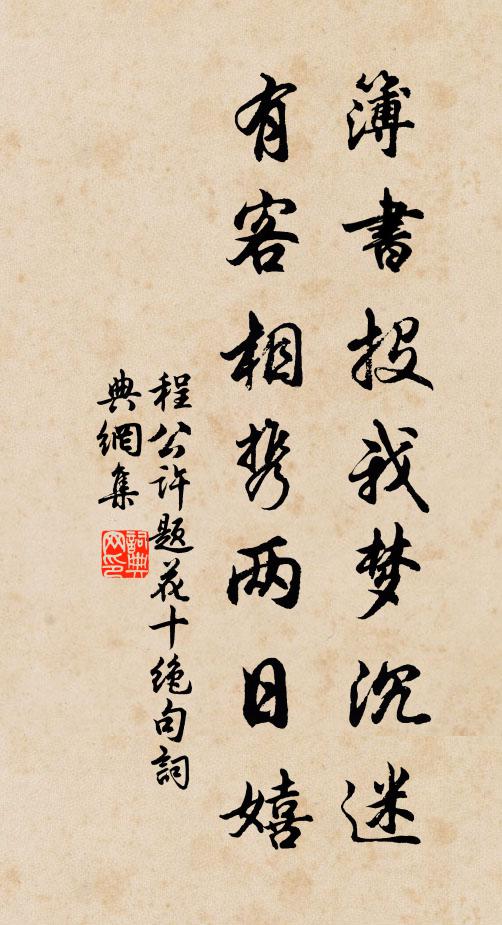 簿書投我梦沉迷
有客相携两日嬉
程公许题花十绝句詞
典網集
詞典
网印